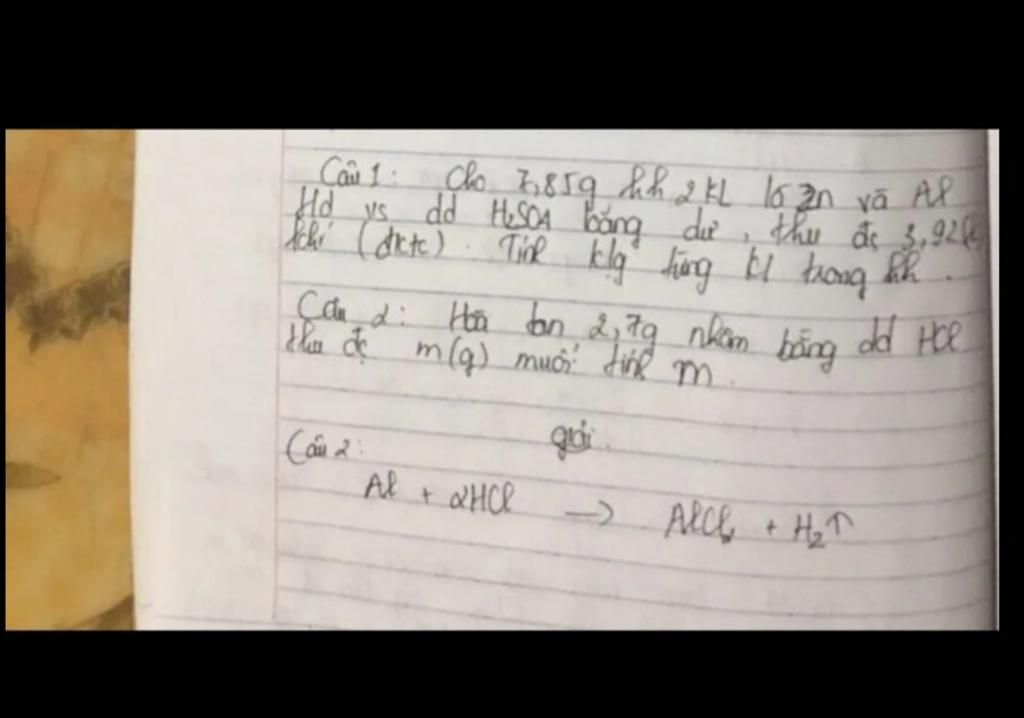 Câu 1: Cho 7,85g hh 2 KL là Zn và Al
td vs dd H₂SO4 bằng dư, thu đc 3,92(l)
khí (đktc). Tính klg từng kl trong hh.
Câu 2: Hòa tan 2,7g nhôm bằng dd HCl
thu đc m(g) muối tính m.
giải.
Câu 2:
Al + 2HCl → AlCl₃ + H₂↑